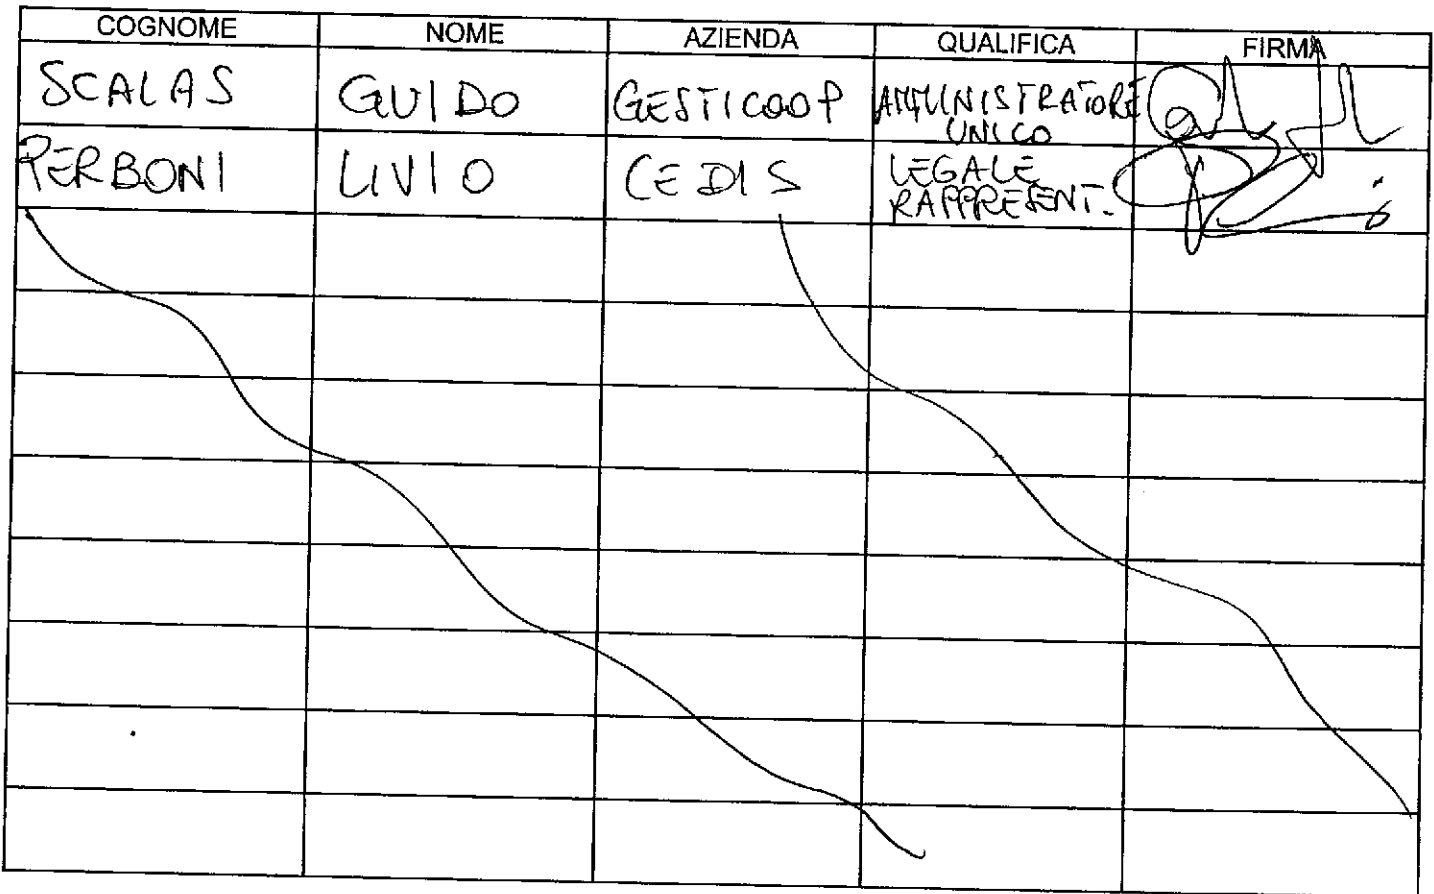 COGNOME NOME AZIENDA QUALIFICA FIRMA
SCALAS GUIDO GESTICOOP AMMINISTRATORE
UNICO
PERBONI LIVIO CEDIS LEGALE
RAPPRESENT.